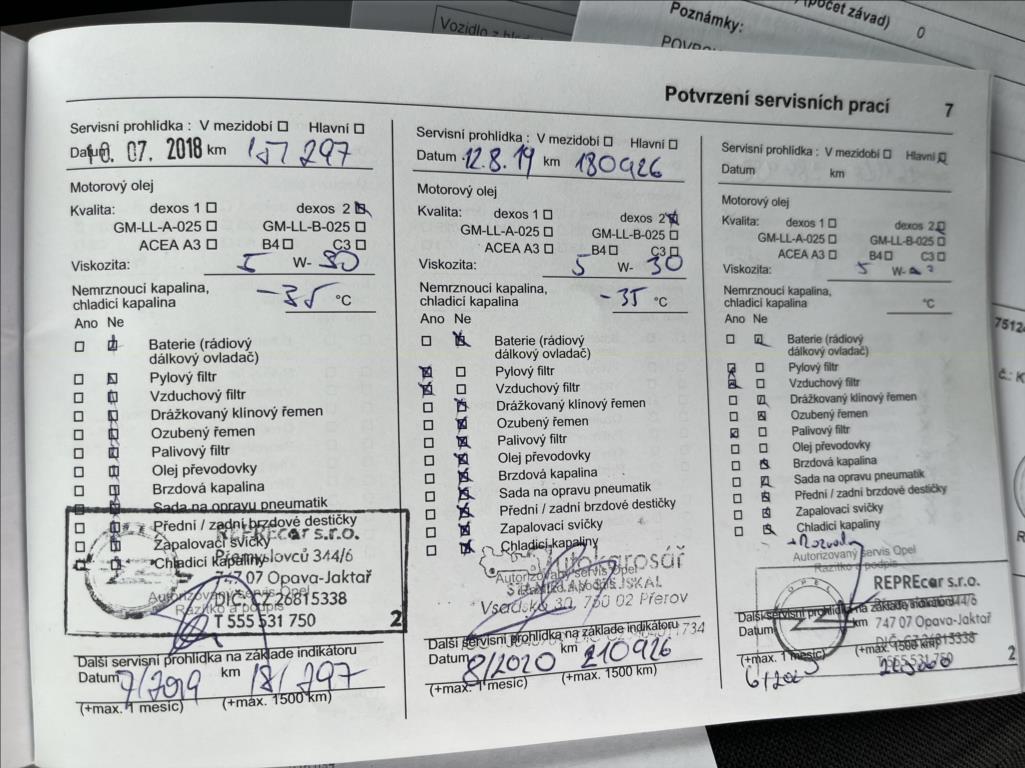 Vozidlo z
Poznámky:
(počet závad)
0
Potvrzení servisních prací 7
Servisní prohlídka : V mezidobí Hlavní
Datum 10. 07. 2018 km 151 297
Motorový olej
Kvalita: dexos 1 dexos 2
GM-LL-A-025 GM-LL-B-025
ACEA A3 B4 C3
Viskozita: 5 W- 30
Nemrznoucí kapalina,
chladicí kapalina -35 °C
Ano Ne
Baterie (rádiový
dálkový ovladač)
Pylový filtr
Vzduchový filtr
Drážkovaný klínový řemen
Ozubený řemen
Palivový filtr
Olej převodovky
Brzdová kapalina
Sada na opravu pneumatik
Přední / zadní brzdové destičky
Zapalovací svíčky
Chladicí kapaliny
Autorizovaný servis Opel
Razítko a podpis
REPREcar s.r.o.
Přemyslovců 344/6
747 07 Opava-Jaktař
DIČ: CZ 26815338
T 555 531 750 2
Další servisní prohlídka na základe indikátoru
Datum 7/2019 km 181 297
(+max. 1 měsíc) (+max. 1500 km)
Servisní prohlídka : V mezidobí Hlavní
Datum 12.8.19 km 180926
Motorový olej
Kvalita: dexos 1 dexos 2
GM-LL-A-025 GM-LL-B-025
ACEA A3 B4 C3
Viskozita: 5 W- 30
Nemrznoucí kapalina,
chladicí kapalina -35 °C
Ano Ne
Baterie (rádiový
dálkový ovladač)
Pylový filtr
Vzduchový filtr
Drážkovaný klínový řemen
Ozubený řemen
Palivový filtr
Olej převodovky
Brzdová kapalina
Sada na opravu pneumatik
Přední / zadní brzdové destičky
Zapalovací svíčky
Chladicí kapaliny
Autokarosář
Autorizovaný servis Opel
Vsadsko 30, 750 02 Přerov
Další servisní prohlídka na základe indikátoru
Datum 8/2020 km 210926
(+max. 1 měsíc) (+max. 1500 km)
Servisní prohlídka : V mezidobí Hlavní
Datum km
Motorový olej
Kvalita: dexos 1 dexos 2
GM-LL-A-025 GM-LL-B-025
ACEA A3 B4 C3
Viskozita: 5 W-
Nemrznoucí kapalina,
chladicí kapalina °C
Ano Ne
Baterie (rádiový
dálkový ovladač)
Pylový filtr
Vzduchový filtr
Drážkovaný klínový řemen
Ozubený řemen
Palivový filtr
Olej převodovky
Brzdová kapalina
Sada na opravu pneumatik
Přední / zadní brzdové destičky
Zapalovací svíčky
Chladicí kapaliny
Autorizovaný servis Opel
Razítko a podpis
OPEL
REPREcar s.r.o.
747 07 Opava-Jaktař
DIČ: CZ 26815338
T 555 531 750 2
Další servisní prohlídka na základe indikátoru
Datum km
(+max. 1 měsíc) (+max. 1500 km)